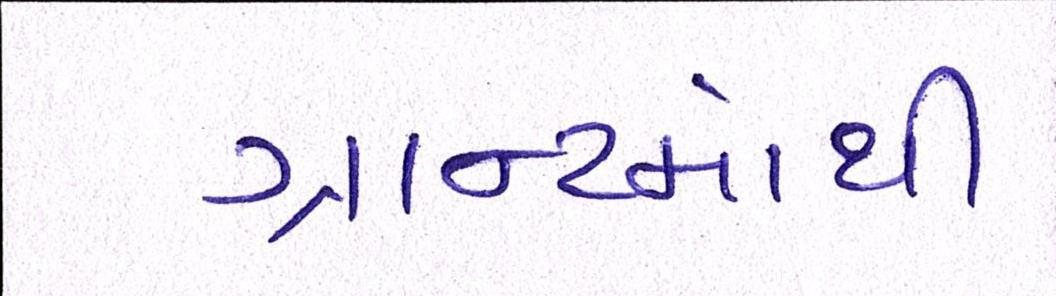 ગ્રાન્ટમાંથી